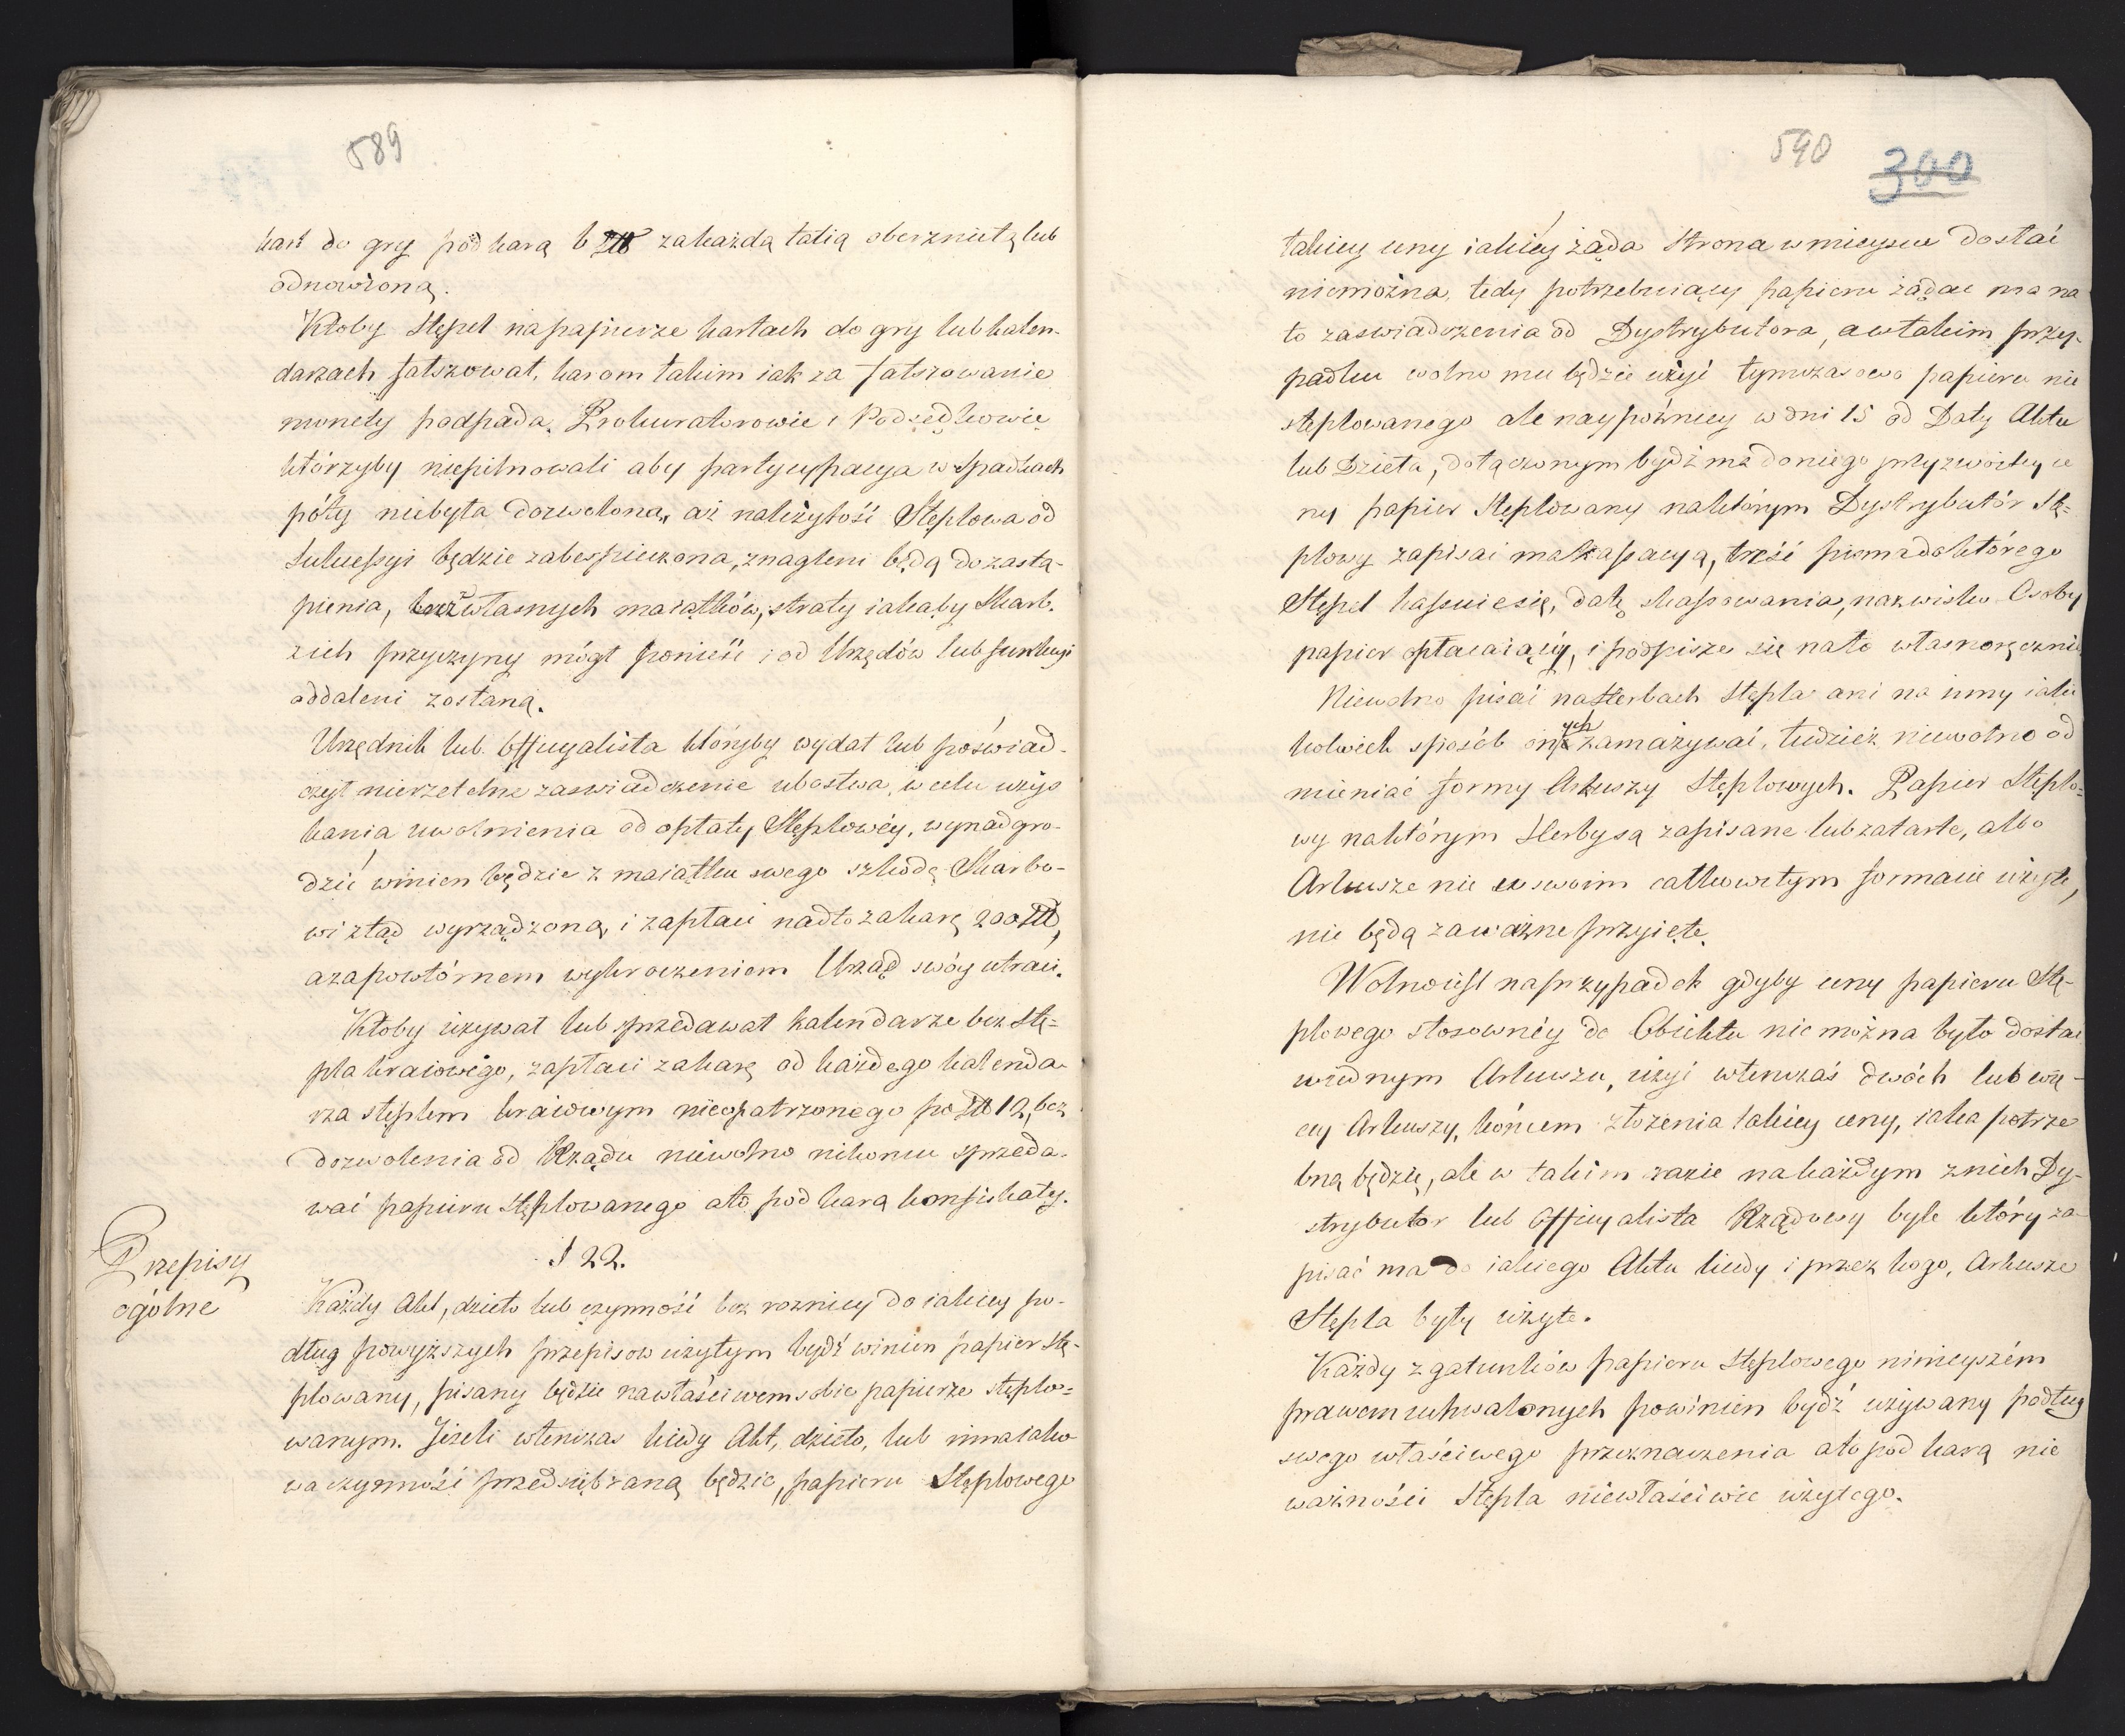 589
kart do gry pod karą 6 Złł za każdą talią oberzniętą lub
odnowioną.
Ktoby Stępel na papierze kartach do gry lub kalen-
darzach fałszował, karom takim iak za fałszowanie
monety podpada. Prokuratorowie i Podsędkowie
którzyby niepilnowali aby partycypacya w spadkach
póty niebyła dozwoloną, aż należytość Stęplowa od
Sukcessyi będzie zabespieczona, znagleni będą do zastą-
pienia, z własnych maiątków, straty iakąby Skarb.
z ich przyczyny mógł ponieść i od Urzędów lub funkcyi
oddaleni zostaną.
Urzędnik lub Officyalista któryby wydał lub poświad-
czył nierzetelne zaswiadczenie ubostwa, w celu uzys
kania uwolnienia od opłaty Stęplowéy, wynadgro-
dzić winien będzie z maiątku swego szkodę Skarbo-
wi ztąd wyrządzoną, i zapłaci nadto za karę 200 Złł,
a za powtórnem wykroczeniem Urząd swóy utraci.
Ktoby używał lub sprzedawał kalendarze bez Stę-
pla kraiowego, zapłaci za karę od każdego kalenda-
rza stęplem kraiowym nieopatrzonego po Złł 12, bez
dozwolenia od Rządu niewolno nikomu sprzeda-
wać papieru Stęplowanego a to pod karą konfiskaty.
§ 22.
Przepisy
ogólne
Każdy Akt, dzieło lub czynność bez roznicy do iakiey po-
dług powyższych przepisow użytym bydź winien papier stę-
plowany, pisany będzie na właściwem sobie papierze stęplo-
wanym. Jeżeli wtenczas kiedy Akt, dzieło, lub inna iako
wa czynność przedsiębraną będzie, papieru Stęplowego
590
300
takiey ceny iakiéy żąda Strona w mieyscu dostać
niemożna, tedy potrzebuiący papieru żądac ma na
to zaswiadczenia od Dystrybutora, a w takim przy-
padku wolno mu będzie użyć tymczasowo papieru nie
stęplowanego ale naypóźniey w dni 15 od Daty Aktu
lub Dzieła, dołączonym bydź ma do niego przyzwoitey ce
ny papier Stęplowany na którym Dystrybutór Stę-
plowy zapisać ma kassacyą, treść pisma do którego
Stępel kassuie się, datę skassowania, nazwisko Osoby
papier opłacaiącéy, i podpisze się na to własnoręcznie
Niewolno pisać na Herbach Stępla ani na inny iaki
kolwiek sposób onych zamazywać, tudzież niewolno od
mieniać formy Arkuszy Stęplowych. Papier Stęplo-
wy na którym Herby są zapisane lub zatarte, albo
Arkusze nie w swoim całkowitym formacie użyte,
nie będą za ważne przyięte.
Wolno iest na przypadek gdyby ceny papieru Stę-
plowego stosownéy do Obiektu nie można było dostać
w iednym Arkuszu, użyć wtenczas dwóch lub wię-
cey Arkuszy, końcem złożenia takiey ceny, iaka potrze
bną będzie, ale w takim razie na każdym z nich Dy-
strybutor lub Officyalista Rządowy byle który za-
pisać ma do iakiego Aktu kiedy i przez kogo, Arkusze
Stępla były użyte.
Każdy z gatunków papieru Stęplowego ninieyszém
prawem uchwalonych powinien bydź używany podług
swego właściwego przeznaczenia a to pod karą nie
ważności Stępla niewłaściwie użytego.